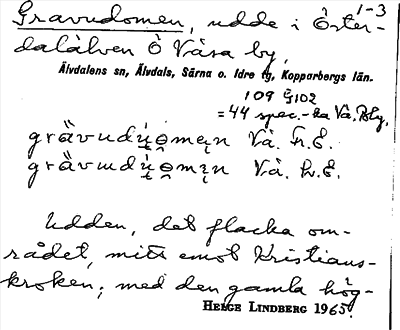 1-3
Gravudomen, udde i Öster-
dalälven Ö Våsa by,
Älvdalens sn, Älvdals, Särna o. Idre tg, Kopparbergs län.
109 G102
=44 spec.-ka Vå. Blg.
Vå. Fr. E.
Vå. L. E.
Udden, det flacka om-
rådet, mitt emot Kristians-
kroken; med den gamla hög-
HELGE LINDBERG 1965.